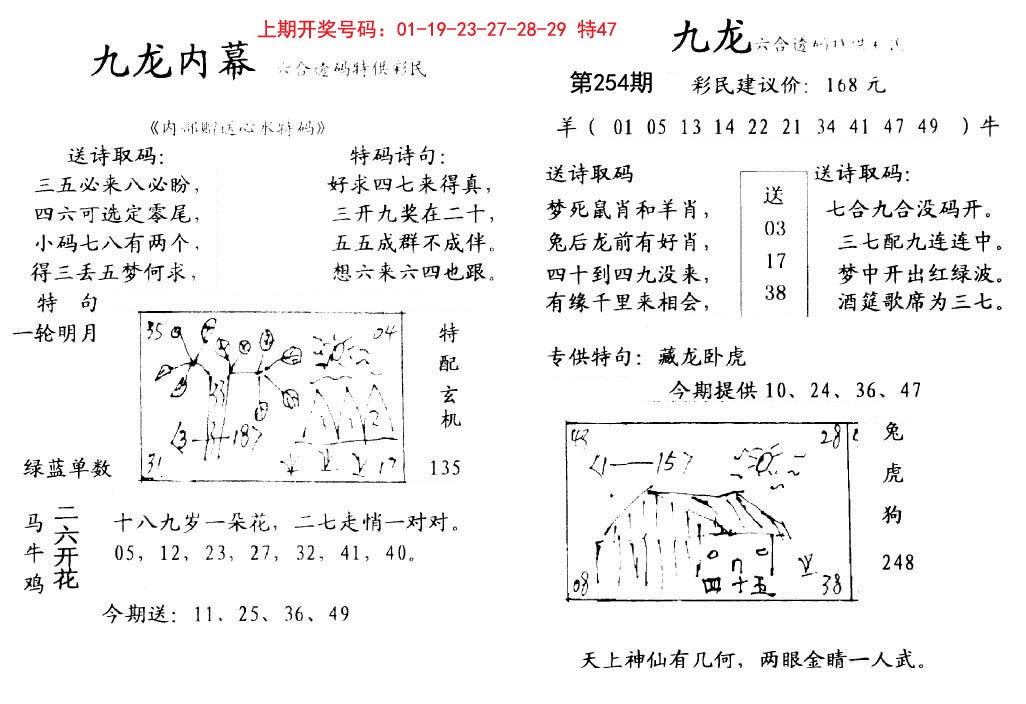 上期开奖号码：01-19-23-27-28-29 特47
九龙内幕 六合透码特供彩民
《内部赠送心水特码》
送诗取码：
三五必来八必盼，
四六可选定零尾，
小码七八有两个，
得三丢五梦何求，
特码诗句：
好求四七来得真，
三开九奖在二十，
五五成群不成伴。
想六来六四也跟。
特 句
一轮明月
绿蓝单数
35 04
23
1 1 2
<3——18>
31 17
特配玄机
135
马牛鸡
二六开花
十八九岁一朵花，二七走悄一对对。
05，12，23，27，32，41，40。
今期送：11．25、36、49
九龙 六合透码特供彩民
第254期 彩民建议价：168 元
羊（ 01 05 13 14 22 21 34 41 47 49 ）牛
送诗取码
梦死鼠肖和羊肖，
兔后龙前有好肖，
四十到四九没来，
有缘千里来相会，
送
03
17
38
送诗取码：
七合九合没码开。
三七配九连连中。
梦中开出红绿波。
酒筵歌席为三七。
专供特句：藏龙卧虎
今期提供 10、24、36、47
28
<1——15>
08 38
四十五
兔
虎
狗
248
天上神仙有几何，两眼金睛一人武。